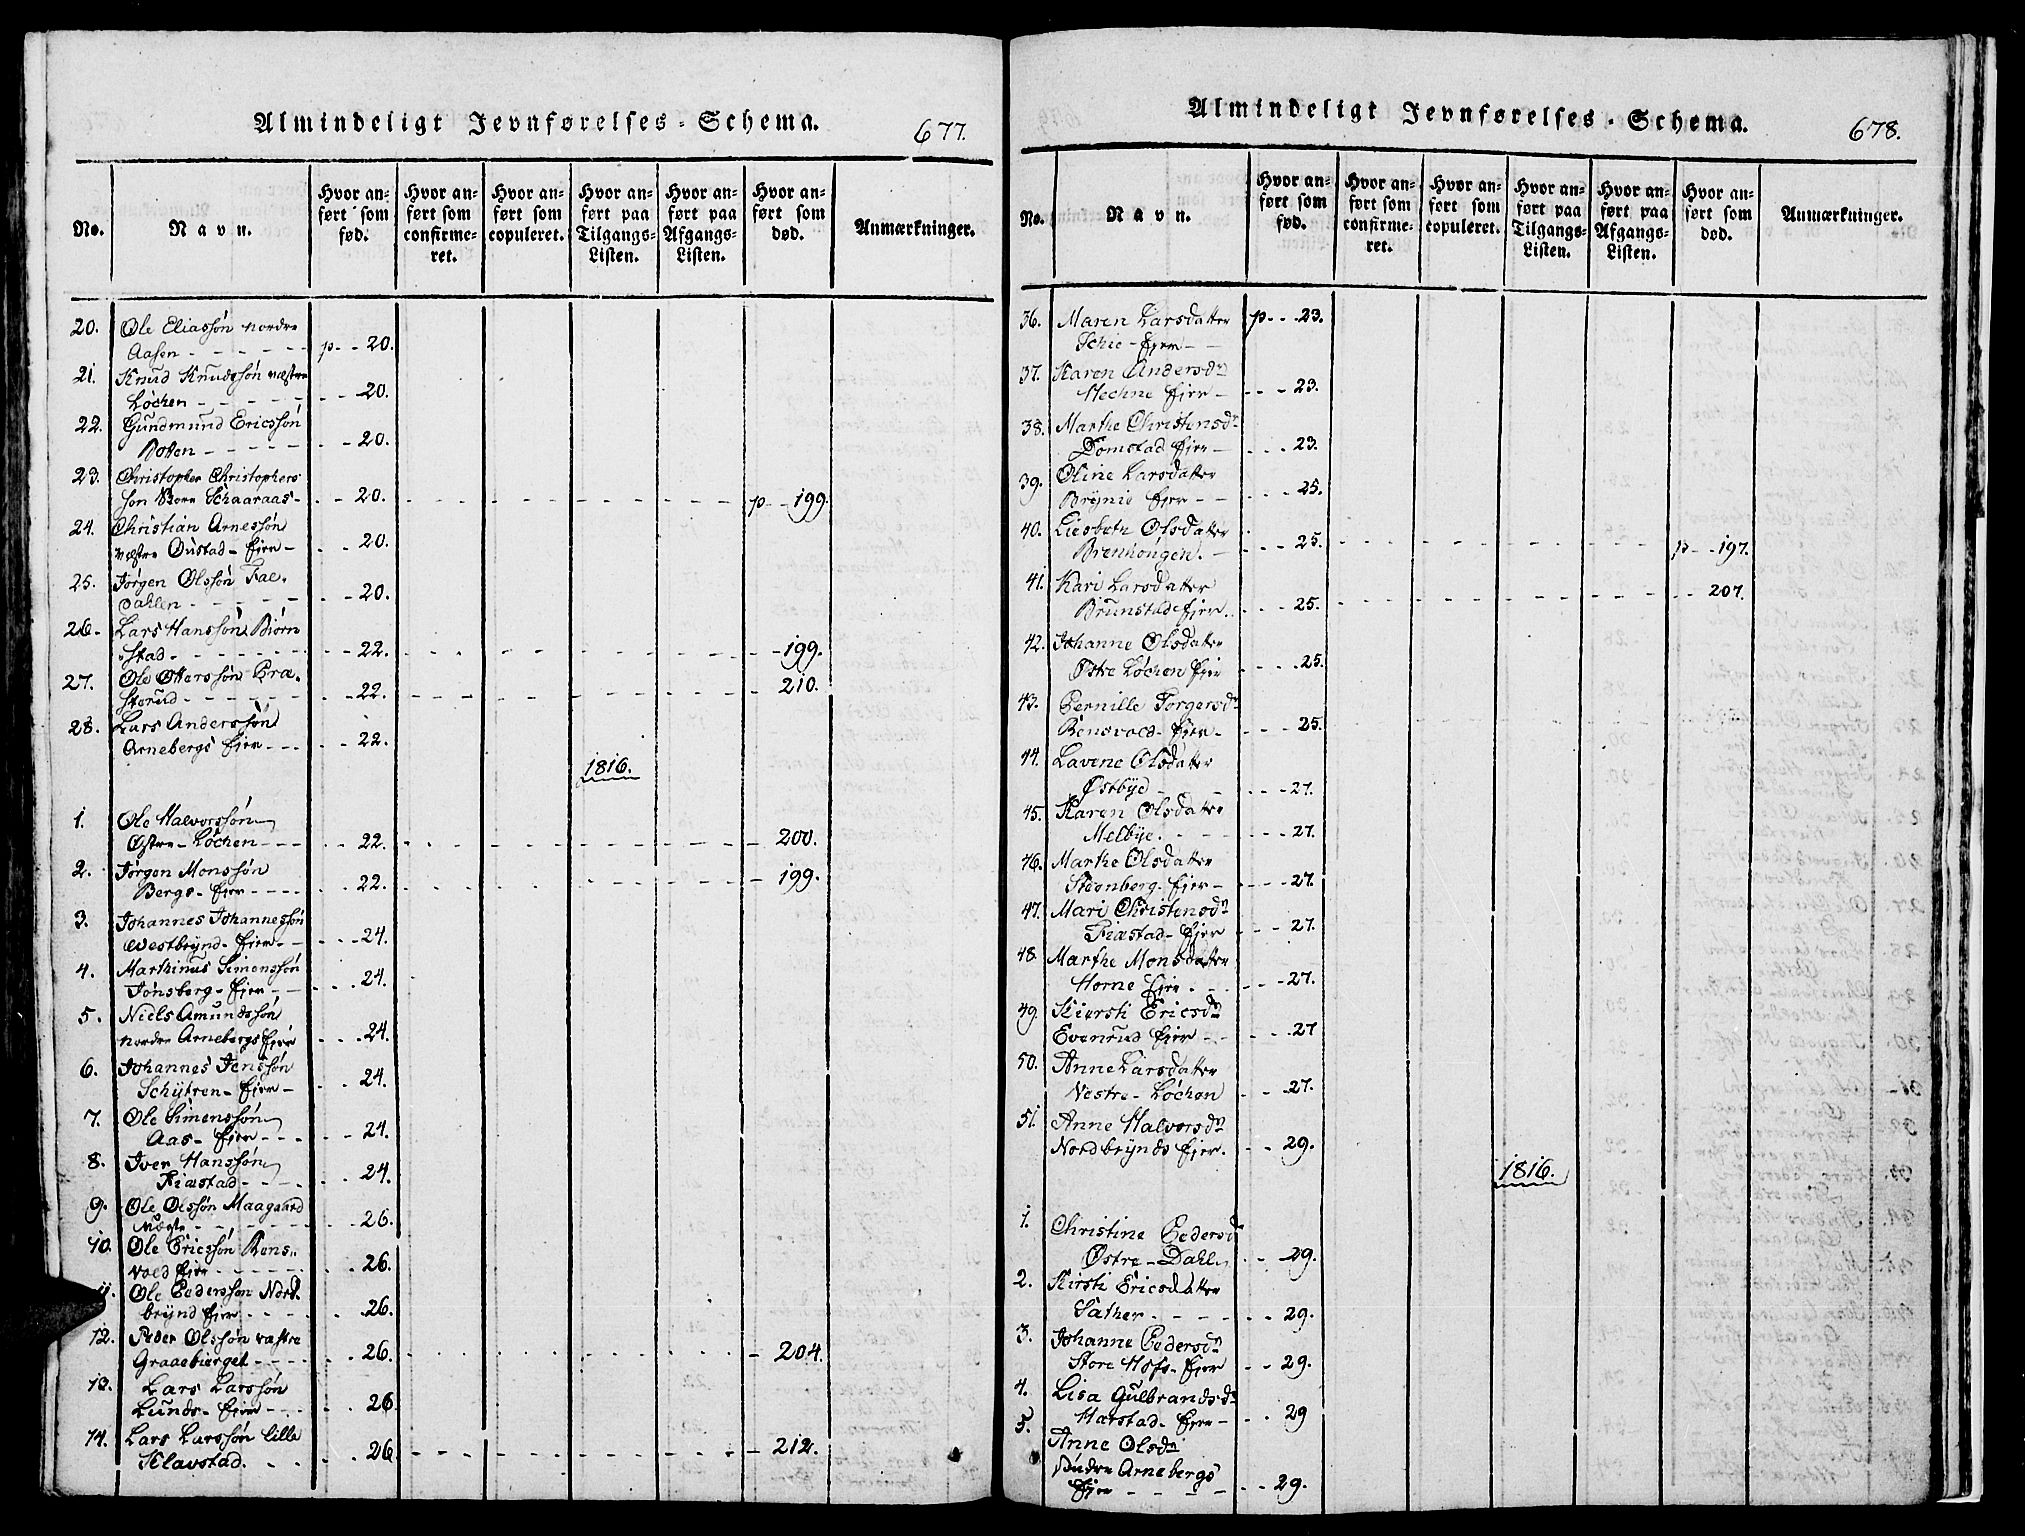 Almindeligt Jevnførelses-Schema. 677.
No. Navn. Hvor anført som fød. Hvor anført som confirmeret. Hvor anført som copuleret. Hvor anført paa Tilgangs-Listen. Hvor anført paa Afgangs-Listen. Hvor anført som død. Anmærkninger.
20. Ole Eliassøn nordre
Aasen - - - - - p - - 20.
21. Knud Knudssøn væstre
Løchen - - - - - - - 20.
22. Gundmund Ericssøn
- - - - - - - 20.
23. Christopher Christophers
søn Schaaraas - - - 20. p - - 199.
24. Christian Arnessøn
væstre Oustad - Eier - - - 20.
25. Jørgen Olssøn Fae-
dahlen - - - - - - - 20.
26. Lars Hanssøn Biørn
stad - - - - - - - 22. - - 199.
27. Ole Ottersøn Præ-
sterud - - - - - - - 22. - - 210.
28. Lars Anderssøn
Arnebergs Eier - - - - - 22.
1816.
1. Ole Halvorssøn
Østre - Løchen - - - - - 22. - - 200.
2. Jørgen Monssøn
Bergs - Eier - - - - - - 22. - - 199.
3. Johannes Johannessøn
Westbrynd - Eier - - - - - 24.
4. Marthinus Simenssøn
Tønsberg - Eier - - - - - 24.
5. Niels Amundssøn
nordre Arnebergs Eier - - - 24.
6. Johannes Jenssøn
Schytren - Eier - - - 24.
7. Ole Simenssøn
Aas - Eier - - - - - 24.
8. Iver Hanssøn
Fiæstad - - - - - 24.
9. Ole Olssøn Maagaard
- - - - - - 26.
10. Ole Ericssøn Bens-
vold Eier - - - - - - 26.
11. Ole Pederssøn Nord-
brynd Eier - - - - 26.
12. Peder Olssøn væstre
Graaebierget - - - - - 26. - 204.
13. Lars Larssøn
Lunds - Eier - - - - - 26.
14. Lars Larssøn lille
Klavstad. - - - - 26 - - 212.
Almindeligt Jevnførelses-Schema. 678.
No. Navn. Hvor anført som fød. Hvor anført som confirmeret. Hvor anført som copuleret. Hvor anført paa Tilgangs-Listen. Hvor anført paa Afgangs-Listen. Hvor anført som død. Anmærkninger.
36. Maren Larsdatter p - - 23.
Schie - Eier - -
37. Karen Andersdr
Hechne Eier - - - - 23.
38. Marthe Christensdr
Domstad Eier - - - - 23.
39. Oline Larsdatter
Brynie Eier - - - - - 25.
40. Liesbeth Olsdatter
Brenhougen. - - - - 25. p - - 197.
41. Kari Larsdatter
Brunstad Eier. - - - 25. - - 207.
42. Johanne Olsdatter
Østre Løchen Eier - - - 25.
43. Pernille Torgersdr
Bensvold - Eier - - - - 25.
44. Lavine Olsdatter
Østbye - - - - - 27.
45. Karen Olsdatter
Melbye. - - - - - 27.
46. Marthe Olsdatter
Steenberg - Eier - - - - 27.
47. Mari Christensdr
Fiæstad - Eier - - - 27.
48. Marthe Monsdatter
Horne Eier. - - - - 27.
49. Kiersti Ericsdr
Evenrud Eier - - - - 27
50. Anne Larsdatter
Vestre - Løchen - - - 27.
51. Anne Halvorsdr
Nordbrynds Eier. - - 29.
1816.
1. Christine Pedersdr
Østre - Dahl - - - 29.
2. Kirsti Ericsdatter
Sæther - - - - - 29.
3. Johanne Pedersdr
Store Hofs - Eier - - 29.
4. Lisa Gulbrandsdr
Harstad - Eier - - - 29
5. Anne Olsdr
søndre Arnebergs
Eier - - - - - - 29.